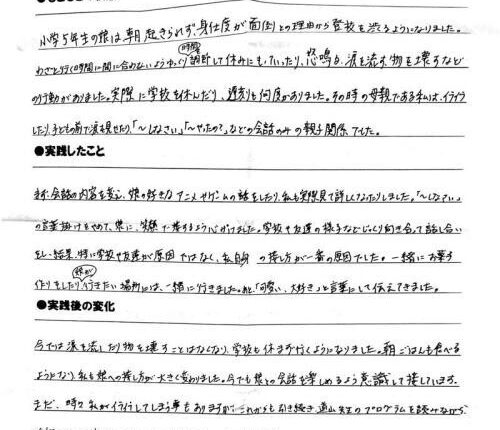 小学5年生の娘は、朝起きられず、身仕度が面倒との理由から登校を渋るようになりました。
わざと行く時間に間に合わないようゆっくり調節して休みにもっていったり、怒鳴る、涙を流す、物を壊すなど
の行動がありました。実際に学校を休んだり、遅刻も何度かありました。その時の母親である私は、イライラ
したり、子どもの前で涙を見せたり、「〜しなさい」「〜やったの?」などの会話のみの親子関係でした。
●実践したこと
まず、会話の内容を変え、娘の好きなアニメやゲームの話をしたり、私も実際見て詳しくなったりしました。「〜しなさい」
の言葉掛けをやめて、常に、笑顔で接するよう心がけました。学校や友達の様子などじっくり向き合って話し合い
をし、結果、特に学校や友達が原因ではなく、私自身の接し方が一番の原因でした。一緒にお菓子
作りをしたり、娘が行きたい場所には、一緒に行きました。あと、「可愛い、大好き」と言葉にして伝えてきました。
●実践後の変化
今では涙を流したり物を壊すことはなくなり、学校も休まず行くようになりました。朝ごはんも食べる
ようになり、私も娘への接し方が大きく変わりました。今でも娘との会話を楽しめるよう意識して接しています。
まだ、時々私がイライラしてしまう事もありますが、これからも引き続き道山先生のプログラムを読みながら、